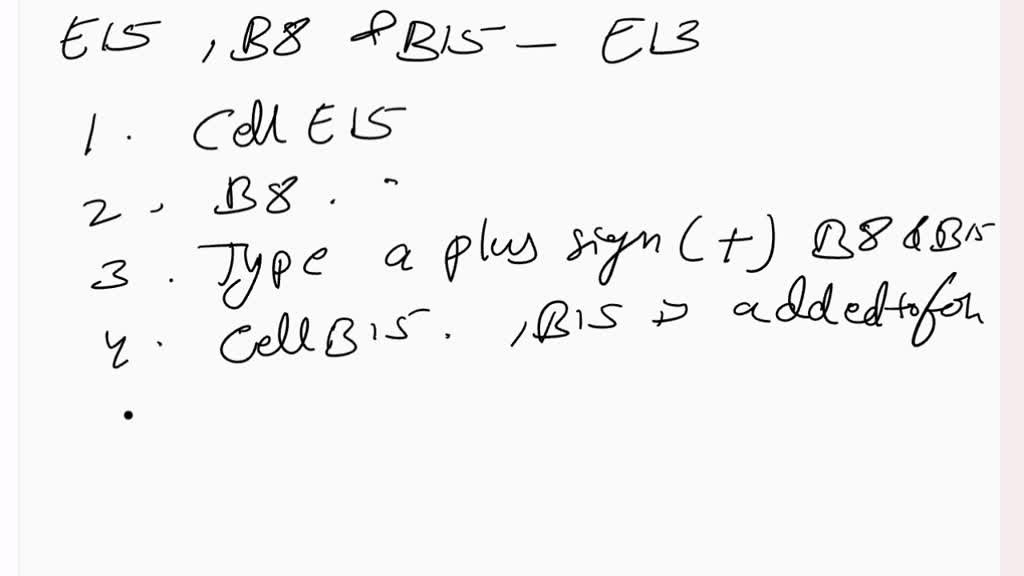 E15 , B8 & B15 – E13
1. Cell E15
2. B8.
3. Type a plus sign (+) B8 & B15
4. Cell B15. , B15 is added to for